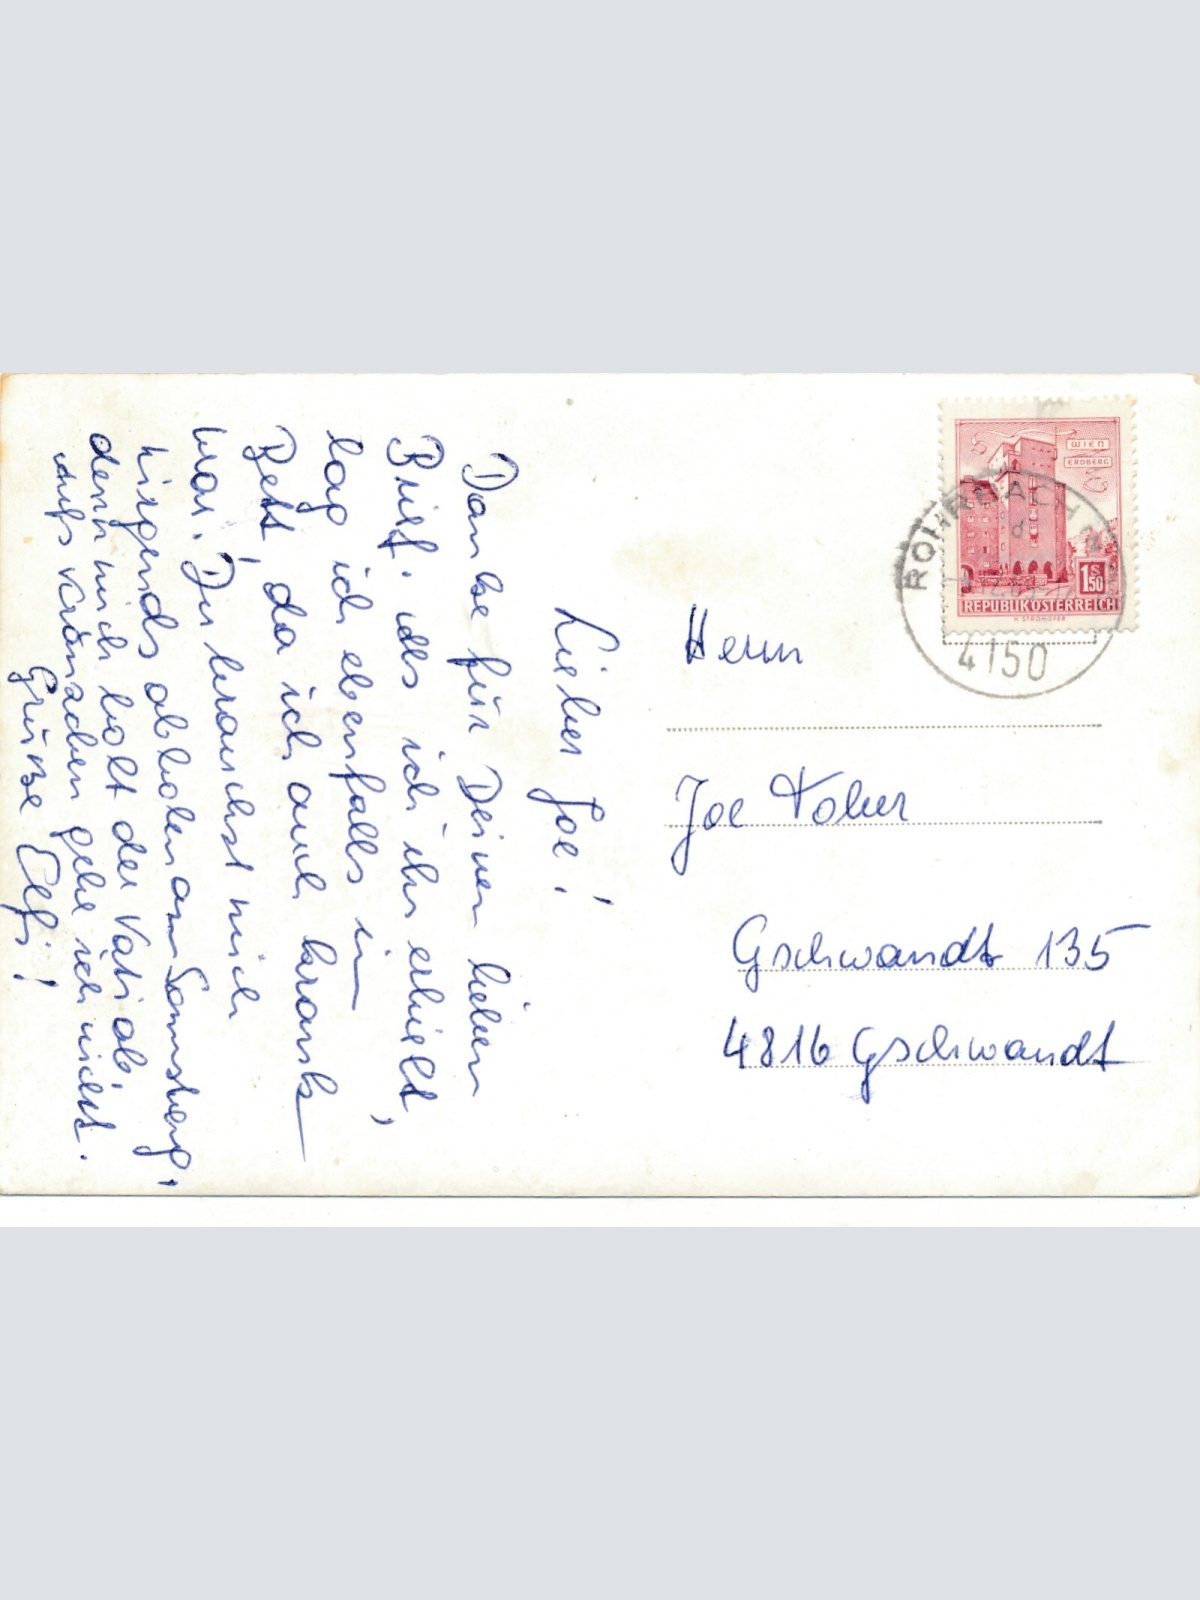 Lieber Joe!
Danke für Deinen lieben
Brief. Als ich ihn erhielt,
lag ich ebenfalls im
Bett, da ich auch krank
war. Du brauchst mich
nirgends abholen am Samstag,
denn mich holt der Vati ab.
Aufs Kränzchen gehe ich nicht.
Grüße Elfi!
WIEN
ERDBERG
1S50
REPUBLIK ÖSTERREICH
H. STROHOFER
ROHRBACH
4150
Herrn
Joe
Gschwandt 135
4816 Gschwandt